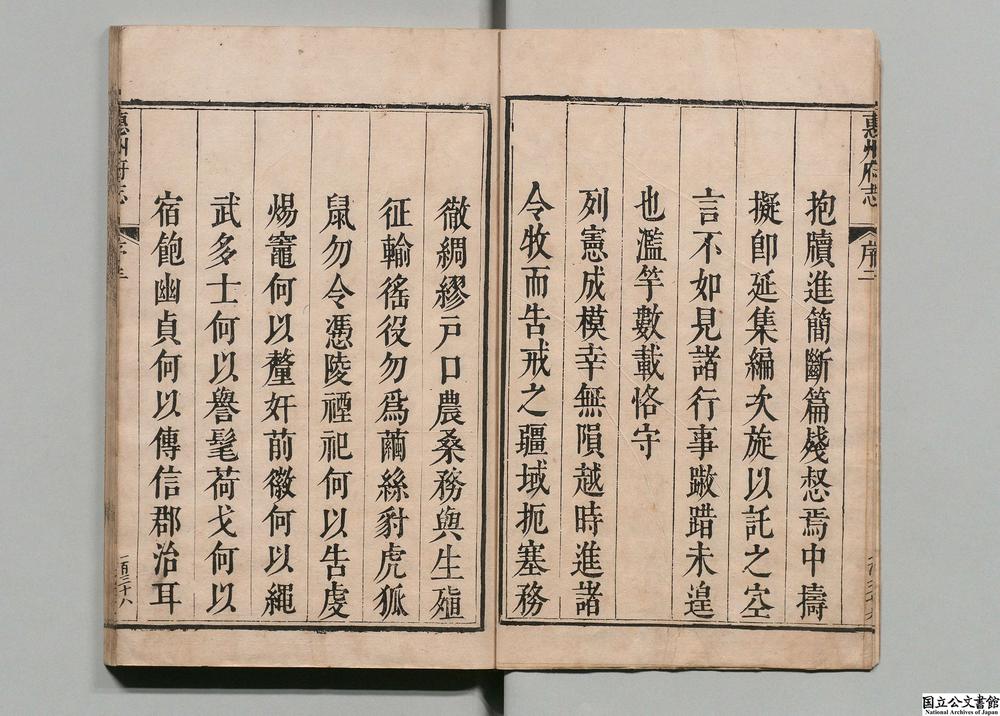 惠州府志
序二
抱牘進簡斷篇殘惄焉中擣
擬卽延集編次旋以託之空
言不如見諸行事踧踖未遑
也濫竽數載恪守
列憲成模幸無隕越時進諸
令牧而告戒之疆域扼塞務
徹綢繆戸口農桑務與生殖
征輸徭役勿爲繭絲豺虎狐
鼠勿令憑陵禋祀何以告虔
煬竈何以釐奸前徽何以繩
武多士何以譽髦荷戈何以
宿飽幽貞何以傳信郡治耳
惠州府志
一百三十八
国立公文書館
National Archives of Japan